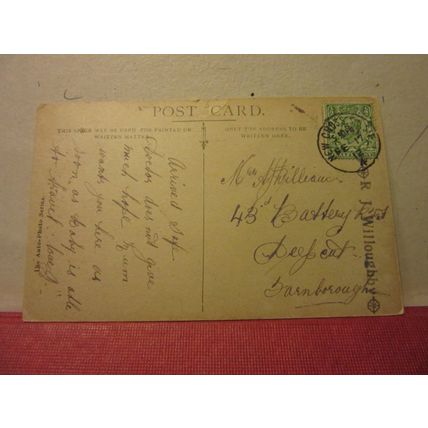 POST CARD.
THIS SPACE MAY BE USED FOR PRINTED OR
WRITTEN MATTER
ONLY THE ADDRESS TO BE
WRITTEN HERE.
Arrived Safe
Doctor does not give
much hope
wants you here as
soon as Baby is able
to travel. Love
43rd Battery
Deepcut
Farnborough
The Auto-Photo Series.
NEW
R J. Willoughby